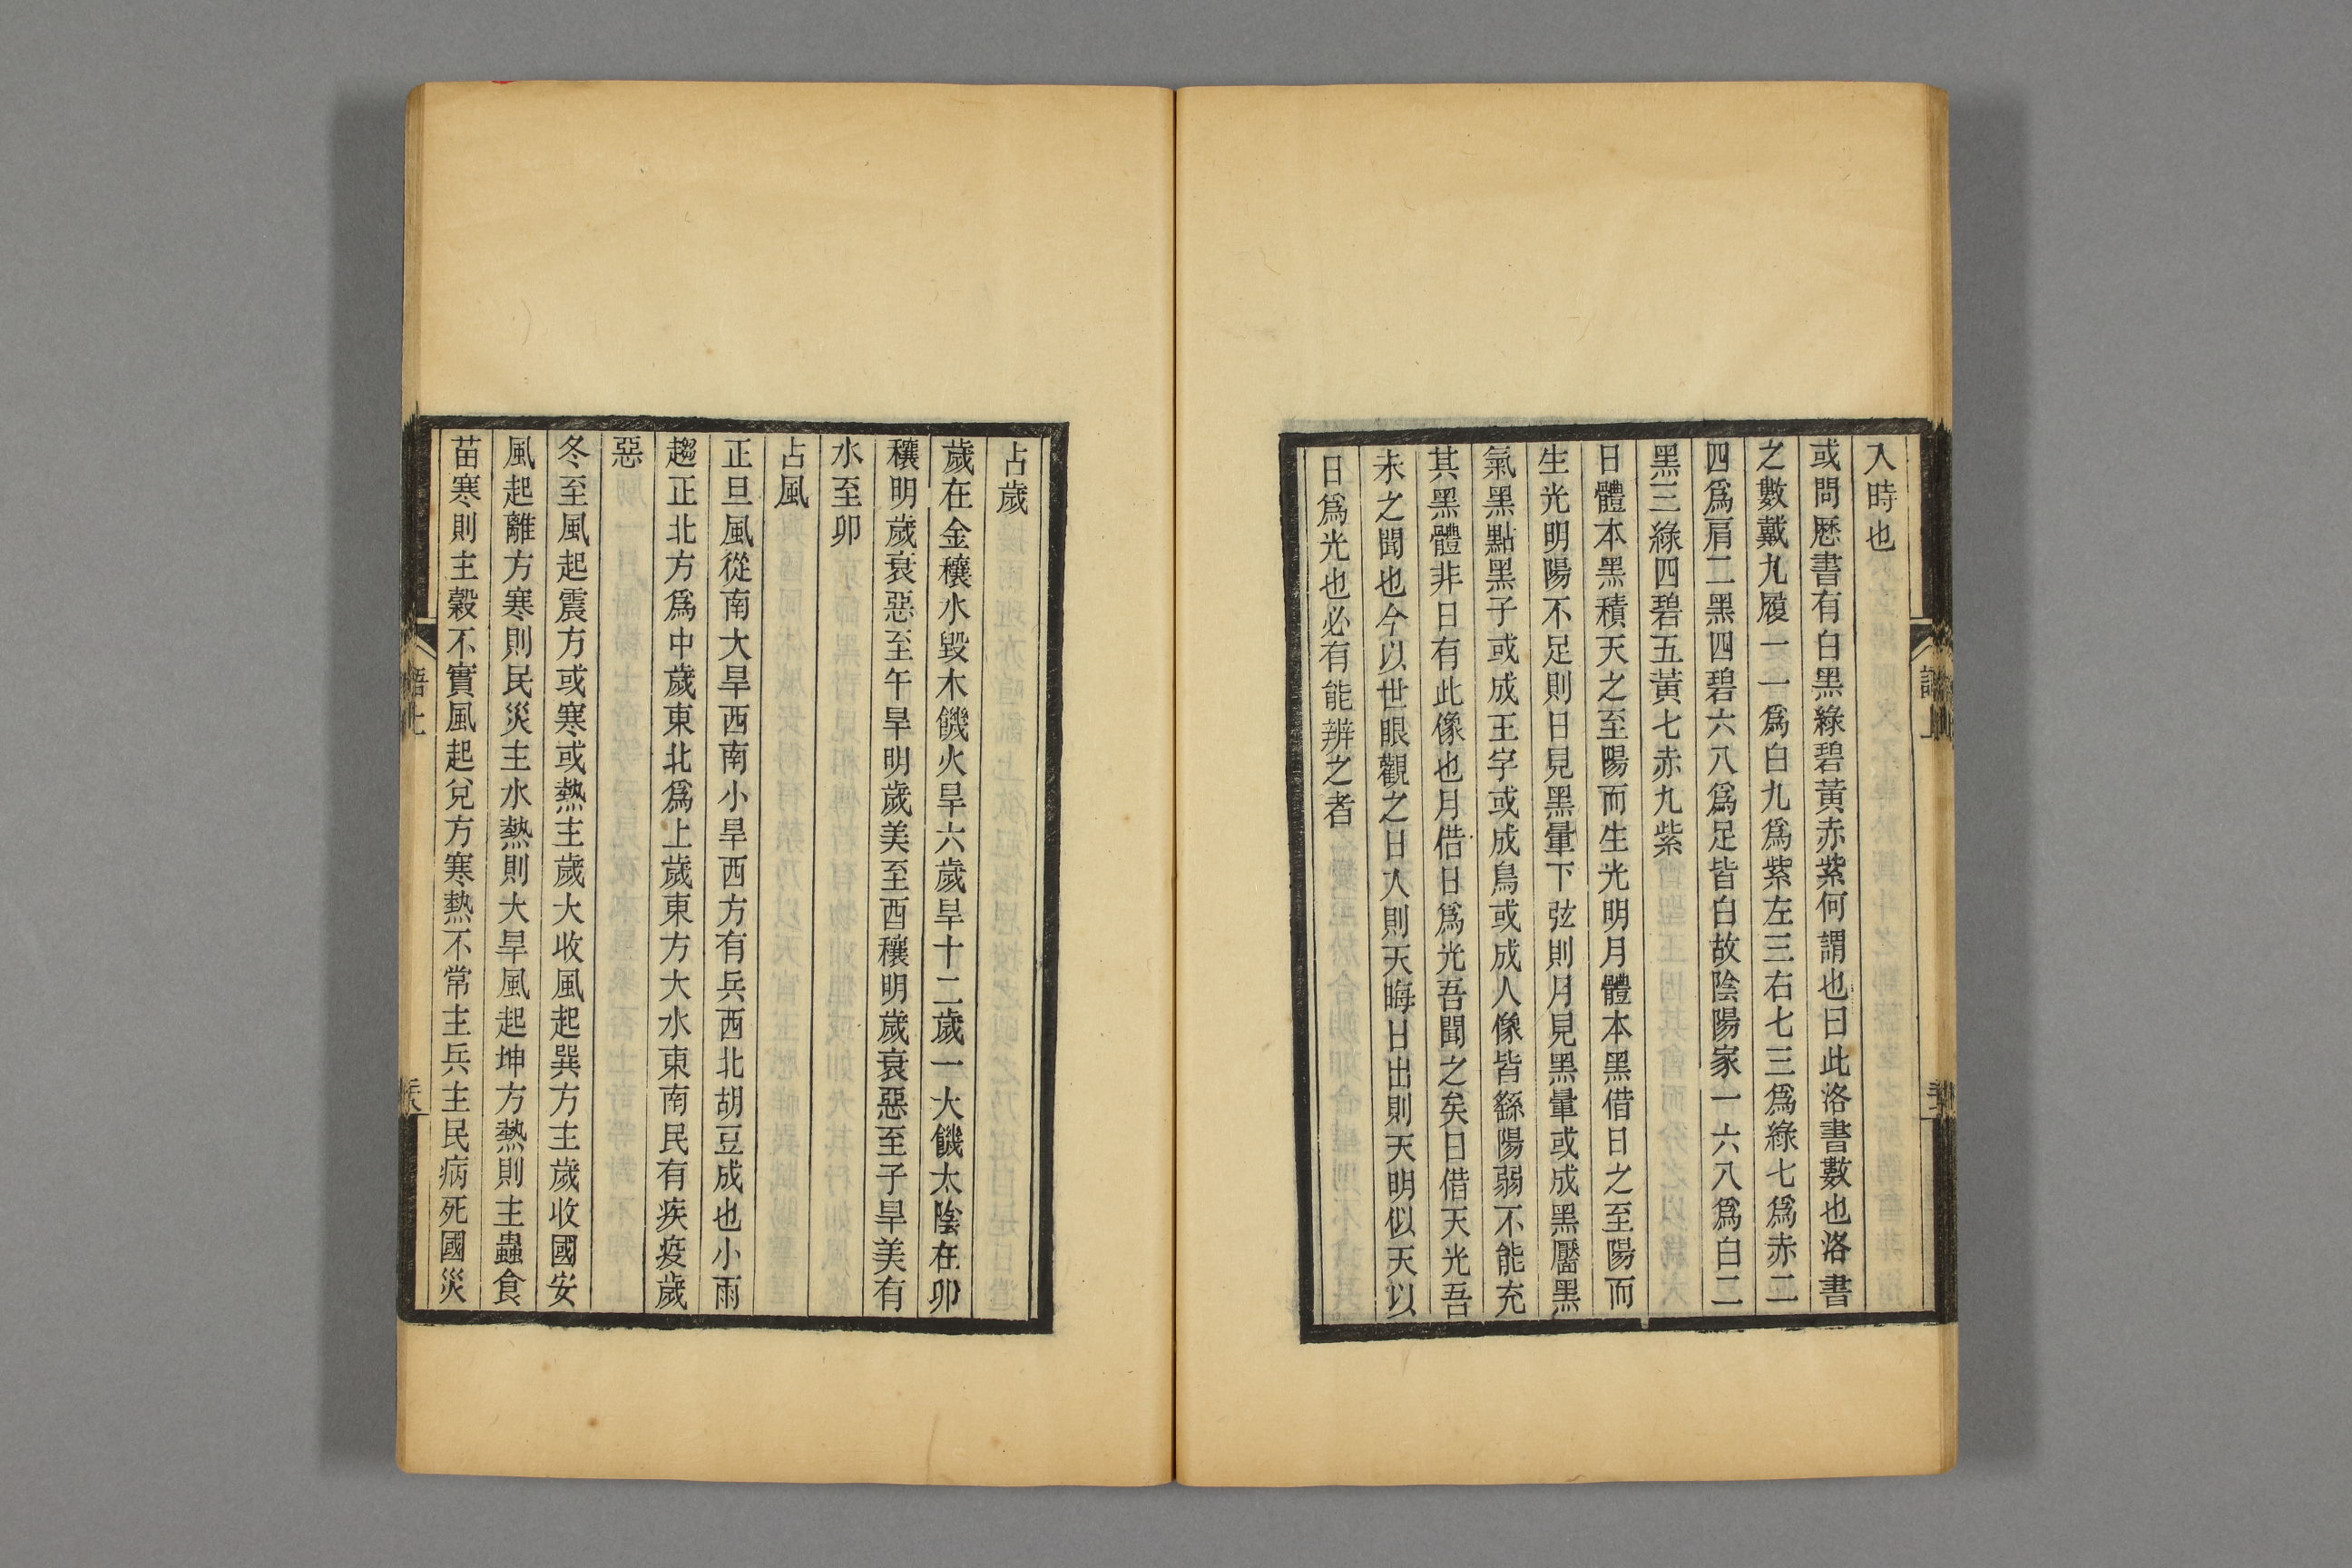 入時也
或問厯書有白黑綠碧黃赤紫何謂也曰此洛書數也洛書
之數戴九履一一爲白九爲紫左三右七三爲綠七爲赤二
四爲肩二黑四碧六八爲足皆白故陰陽家一六八爲白二
黑三綠四碧五黃七赤九紫
日體本黑積天之至陽而生光明月體本黑借日之至陽而
生光明陽不足則日見黑暈下弦則月見黑暈或成黑靨黑
氣黑點黑子或成王字或成鳥或成人像皆繇陽弱不能充
其黑體非日有此像也月借日爲光吾聞之矣日借天光吾
未之聞也今以世眼觀之日入則天晦日出則天明似天以
日爲光也必有能辨之者
占歲
歲在金穰水毀木饑火旱六歲旱十二歲一大饑太陰在卯
穰明歲衰惡至午旱明歲美至酉穰明歲衰惡至子旱美有
水至卯
占風
正旦風從南大旱西南小旱西方有兵西北胡豆成也小雨
趨正北方爲中歲東北爲上歲東方大水東南民有疾疫歲
惡
冬至風起震方或寒或熱主歲大收風起巽方主歲收國安
風起離方寒則民災主水熱則大旱風起坤方熱則主蟲食
苗寒則主穀不實風起兌方寒熱不常主兵主民病死國災